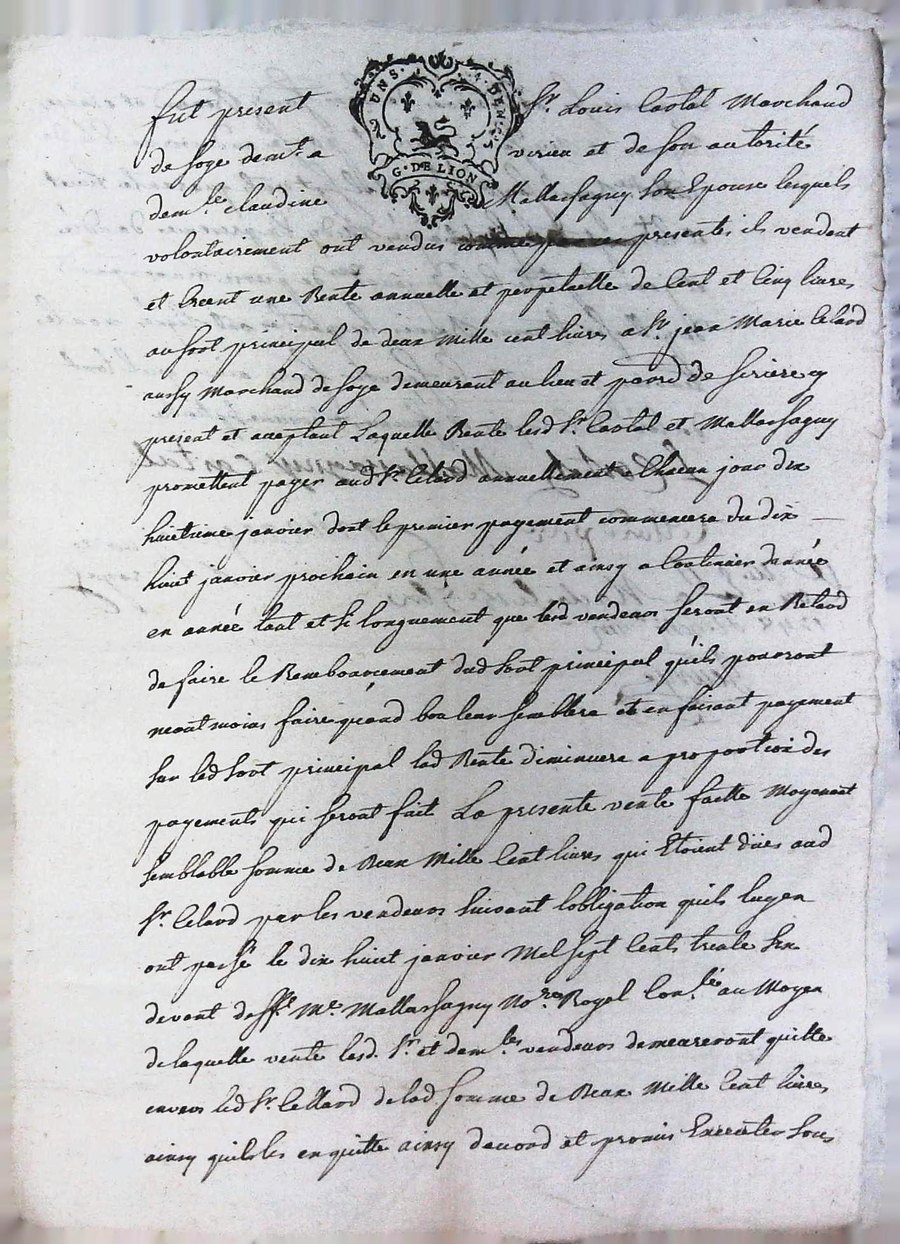 UNS. 4. DENIERS
G. DE LION
fut present Sr Louis Castal Marchand
de soye demt. a virieu et de son autorité
demlle claudine Mallassagny son Epouse lesquels
volontairement ont vendus comme par ces presentes ils vendent
et Creent une Rente annuelle et perpetuelle de Cent et Cinq livres
au sort principal de deux Mille cent livres a Sr. jean Marie Celard
aussy Marchand de soye demeurant au lieu et parroisse de
present et aceptant Laquelle Rente lesd Sr. Castal et Mallassagny
promettent payer aud Sr. Celard annuellement Chacun jour dix
huitieme janvier dont le premier payement commencera du dix
huit janvier prochain en une année et ainsy a Continuer d'année
en année tant et si longuement que lesd vendeurs seront en Retard
de faire le Rembourcement dud sort principal qu'ils pourront
neantmoins faire quand bon leur semblera et en faisant payement
sur led sort principal lad Rente diminuera a proportion des
payements qui seront fait La presente vente faitte Moyenant
semblable somme de Deux Mille Cent livres qui Etoient dües aud
Sr. Celard par les vendeurs suivant lobligation quils luy en
ont passé le dix huit janvier Mil sept Cents trente six
devant defft Me. Mallassagny Nore Royal au Moyen
de laquelle vente lesd. Sr. et demlle vendeurs demeureront quitte
envers led Sr. Cellard de lad somme de Deux Mille Cent livres
ainsy quil les en quitte ainsy dacord et promis Executer sous